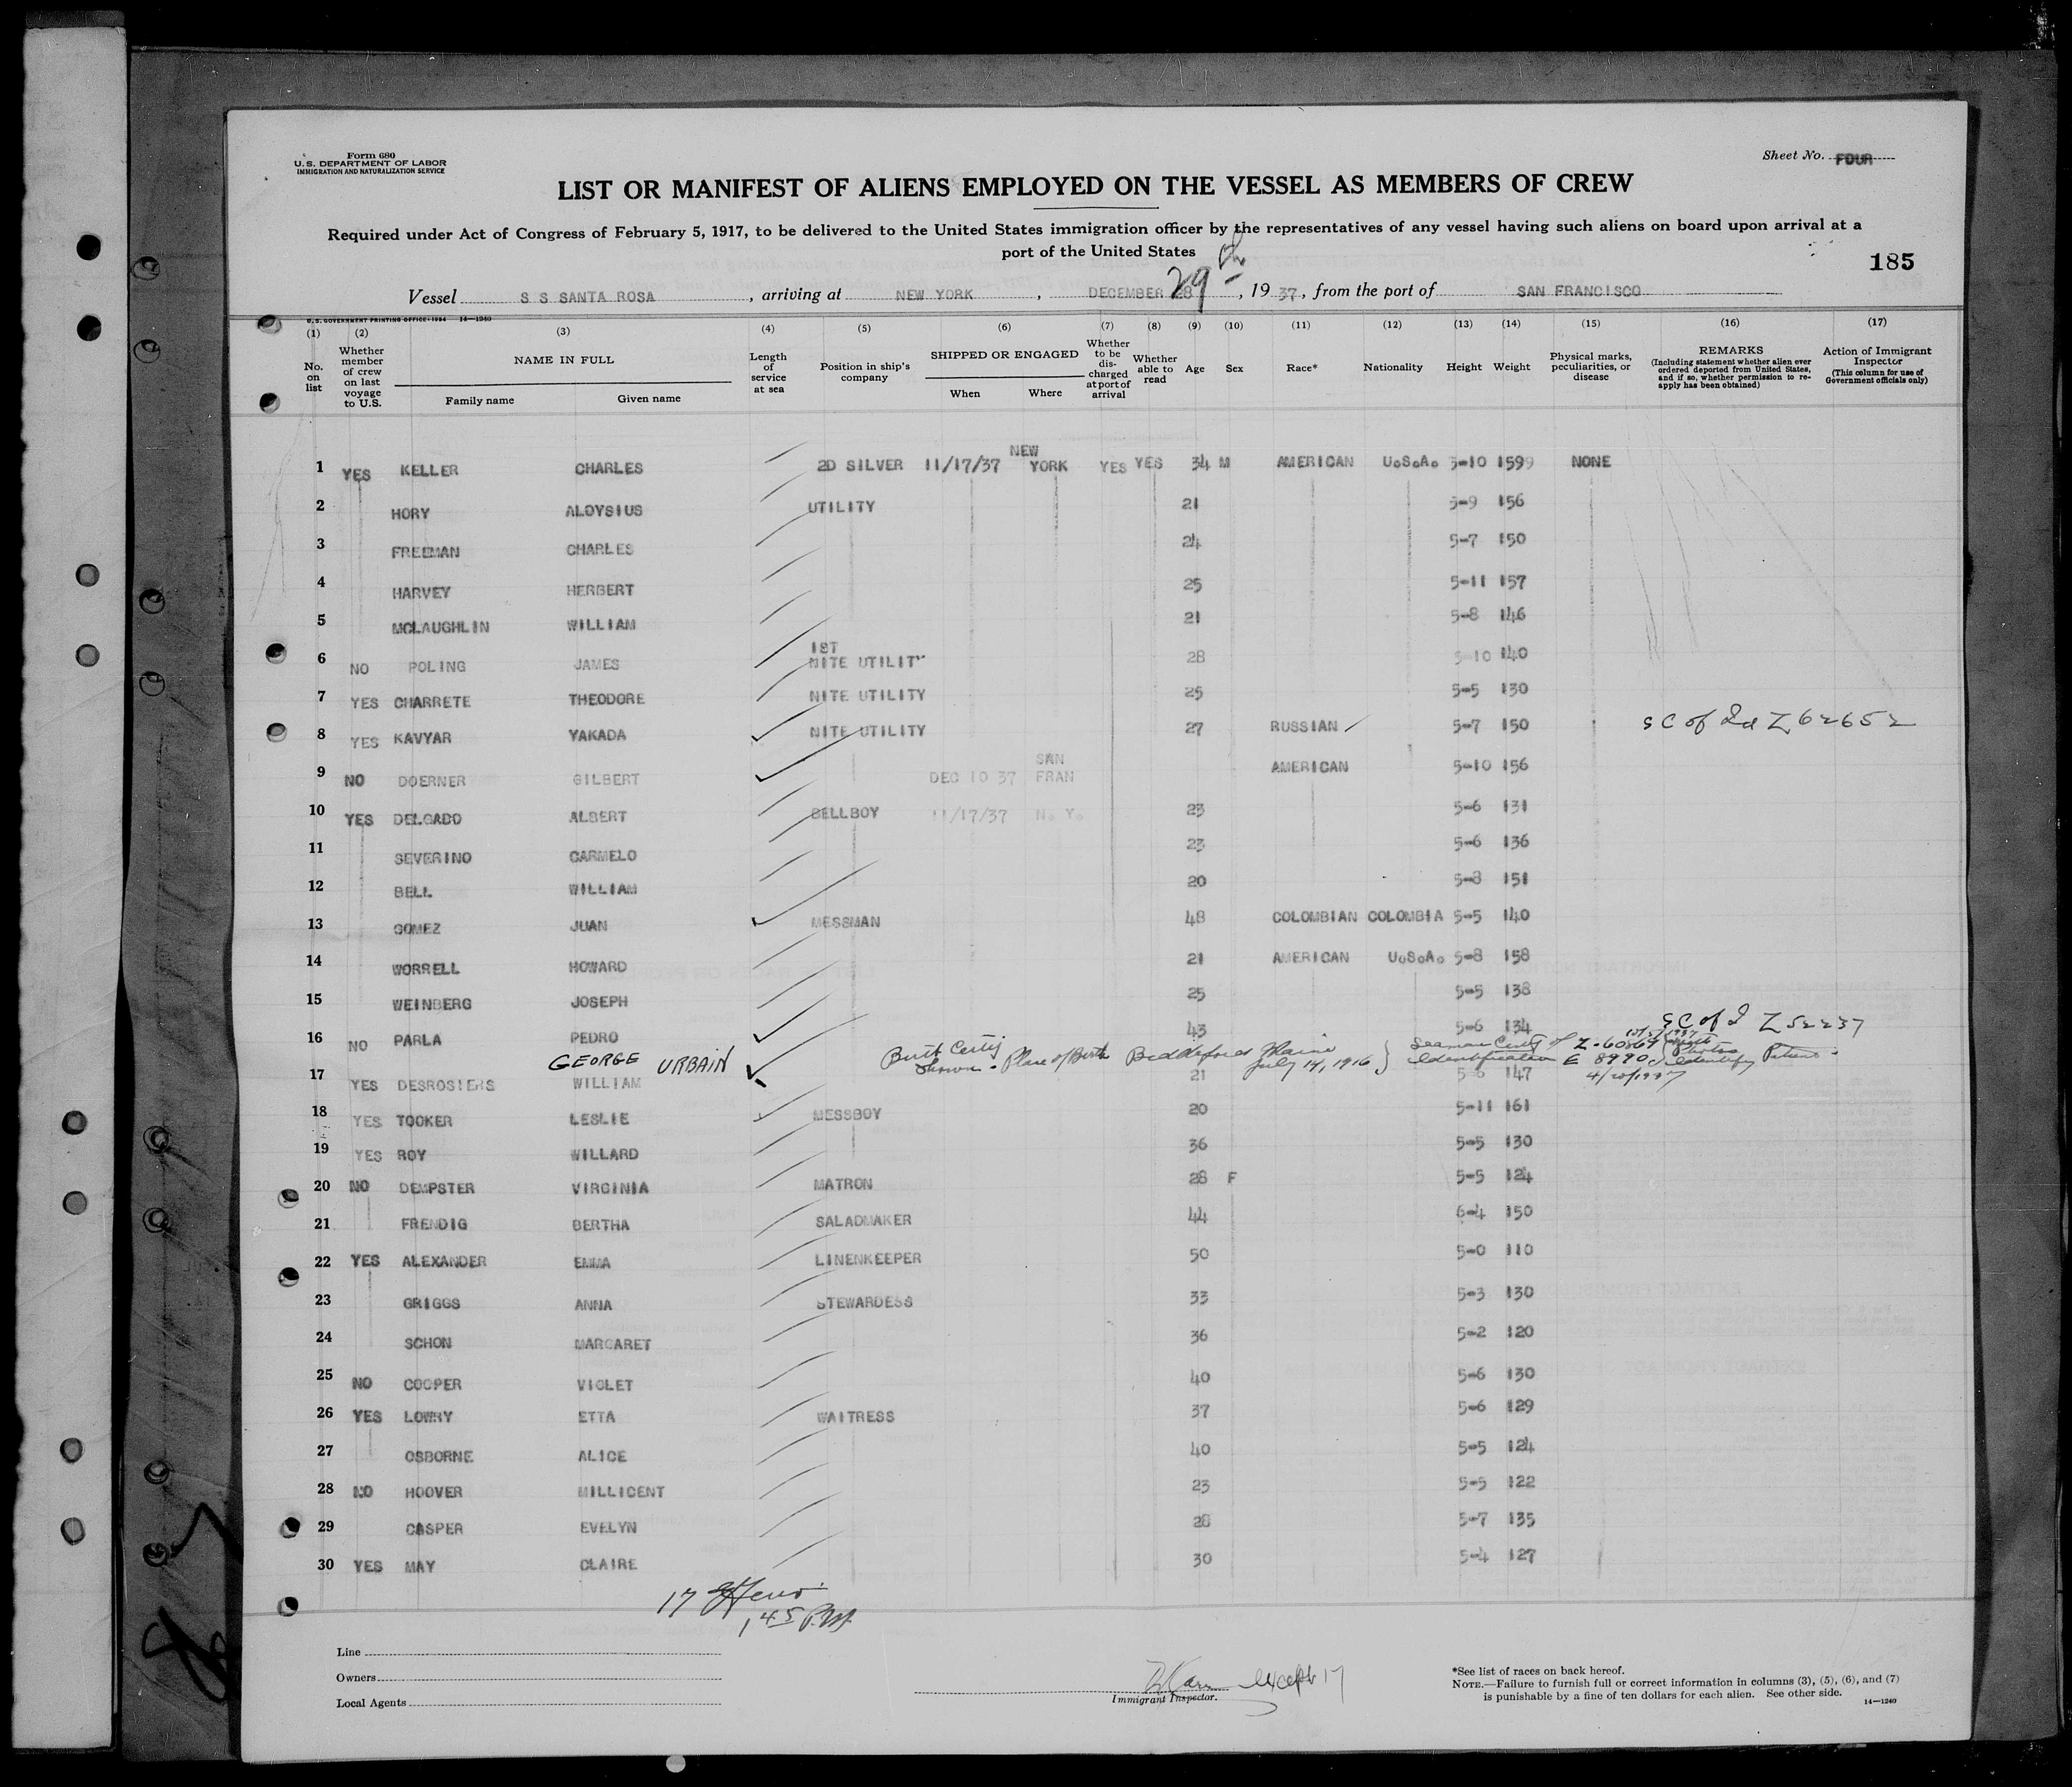 Form 680
U. S. DEPARTMENT OF LABOR
IMMIGRATION AND NATURALIZATION SERVICE
Sheet No. FOUR
LIST OR MANIFEST OF ALIENS EMPLOYED ON THE VESSEL AS MEMBERS OF CREW
Required under Act of Congress of February 5, 1917, to be delivered to the United States immigration officer by the representatives of any vessel having such aliens on board upon arrival at a
port of the United States
185
Vessel S S SANTA ROSA, arriving at NEW YORK, DECEMBER 28 29th, 1937, from the port of SAN FRANCISCO
U. S. GOVERNMENT PRINTING OFFICE: 1934 14—1240
(1) (2) (3) (4) (5) (6) (7) (8) (9) (10) (11) (12) (13) (14) (15) (16) (17)
No. on list
Whether member of crew on last voyage to U.S.
NAME IN FULL
Family name Given name
Length of service at sea
Position in ship's company
SHIPPED OR ENGAGED
When Where
Whether to be discharged at port of arrival
Whether able to read
Age Sex Race* Nationality Height Weight
Physical marks, peculiarities, or disease
REMARKS
(Including statement whether alien ever ordered deported from United States, and if so, whether permission to reapply has been obtained)
Action of Immigrant Inspector
(This column for use of Government officials only)
1 YES KELLER CHARLES 2D SILVER 11/17/37 NEW YORK YES YES 34 M AMERICAN U.S.A. 5-10 1599 NONE
2 HORY ALOYSIUS UTILITY 21 5-9 156
3 FREEMAN CHARLES 24 5-7 150
4 HARVEY HERBERT 25 5-11 157
5 MCLAUGHLIN WILLIAM 21 5-8 146
6 NO POLING JAMES 1ST NITE UTILITY 28 5-10 140
7 YES CHARRETE THEODORE NITE UTILITY 25 5-5 130
8 YES KAVYAR YAKADA NITE UTILITY 27 RUSSIAN 5-7 150 S C of Id Z 62652
9 NO DOERNER GILBERT DEC 10 37 SAN FRAN AMERICAN 5-10 156
10 YES DELGADO ALBERT BELLBOY 11/17/37 N. Y. 23 5-6 131
11 SEVERINO CARMELO 23 5-6 136
12 BELL WILLIAM 20 5-8 151
13 GOMEZ JUAN MESSMAN 48 COLOMBIAN COLOMBIA 5-5 140
14 WORRELL HOWARD 21 AMERICAN U.S.A. 5-8 158
15 WEINBERG JOSEPH 25 5-5 138
16 NO PARLA PEDRO 43 5-6 134 S C of I Z 52237
GEORGE URBAIN Birth Certif shown - Place of Birth Biddeford Maine July 14, 1916 } Seaman Certif of Identification Z-60867 E 8990 Identify
17 YES DESROSIERS WILLIAM 21 5-6 147 4/20/1937
18 YES TOOKER LESLIE MESSBOY 20 5-11 161
19 YES ROY WILLARD 36 5-5 130
20 NO DEMPSTER VIRGINIA MATRON 28 F 5-5 124
21 FRENDIG BERTHA SALADMAKER 44 6-4 150
22 YES ALEXANDER EMMA LINENKEEPER 50 5-0 110
23 GRIGGS ANNA STEWARDESS 33 5-3 130
24 SCHON MARGARET 36 5-2 120
25 NO COOPER VIOLET 40 5-6 130
26 YES LOWRY ETTA WAITRESS 37 5-6 129
27 OSBORNE ALICE 40 5-5 124
28 NO HOOVER MILLICENT 23 5-5 122
29 CASPER EVELYN 28 5-7 135
30 YES MAY CLAIRE 30 5-4 127
17
1 45 P.M.
Line
Owners
Local Agents
except 17
Immigrant Inspector.
*See list of races on back hereof.
NOTE.—Failure to furnish full or correct information in columns (3), (5), (6), and (7)
is punishable by a fine of ten dollars for each alien. See other side.
14—1240